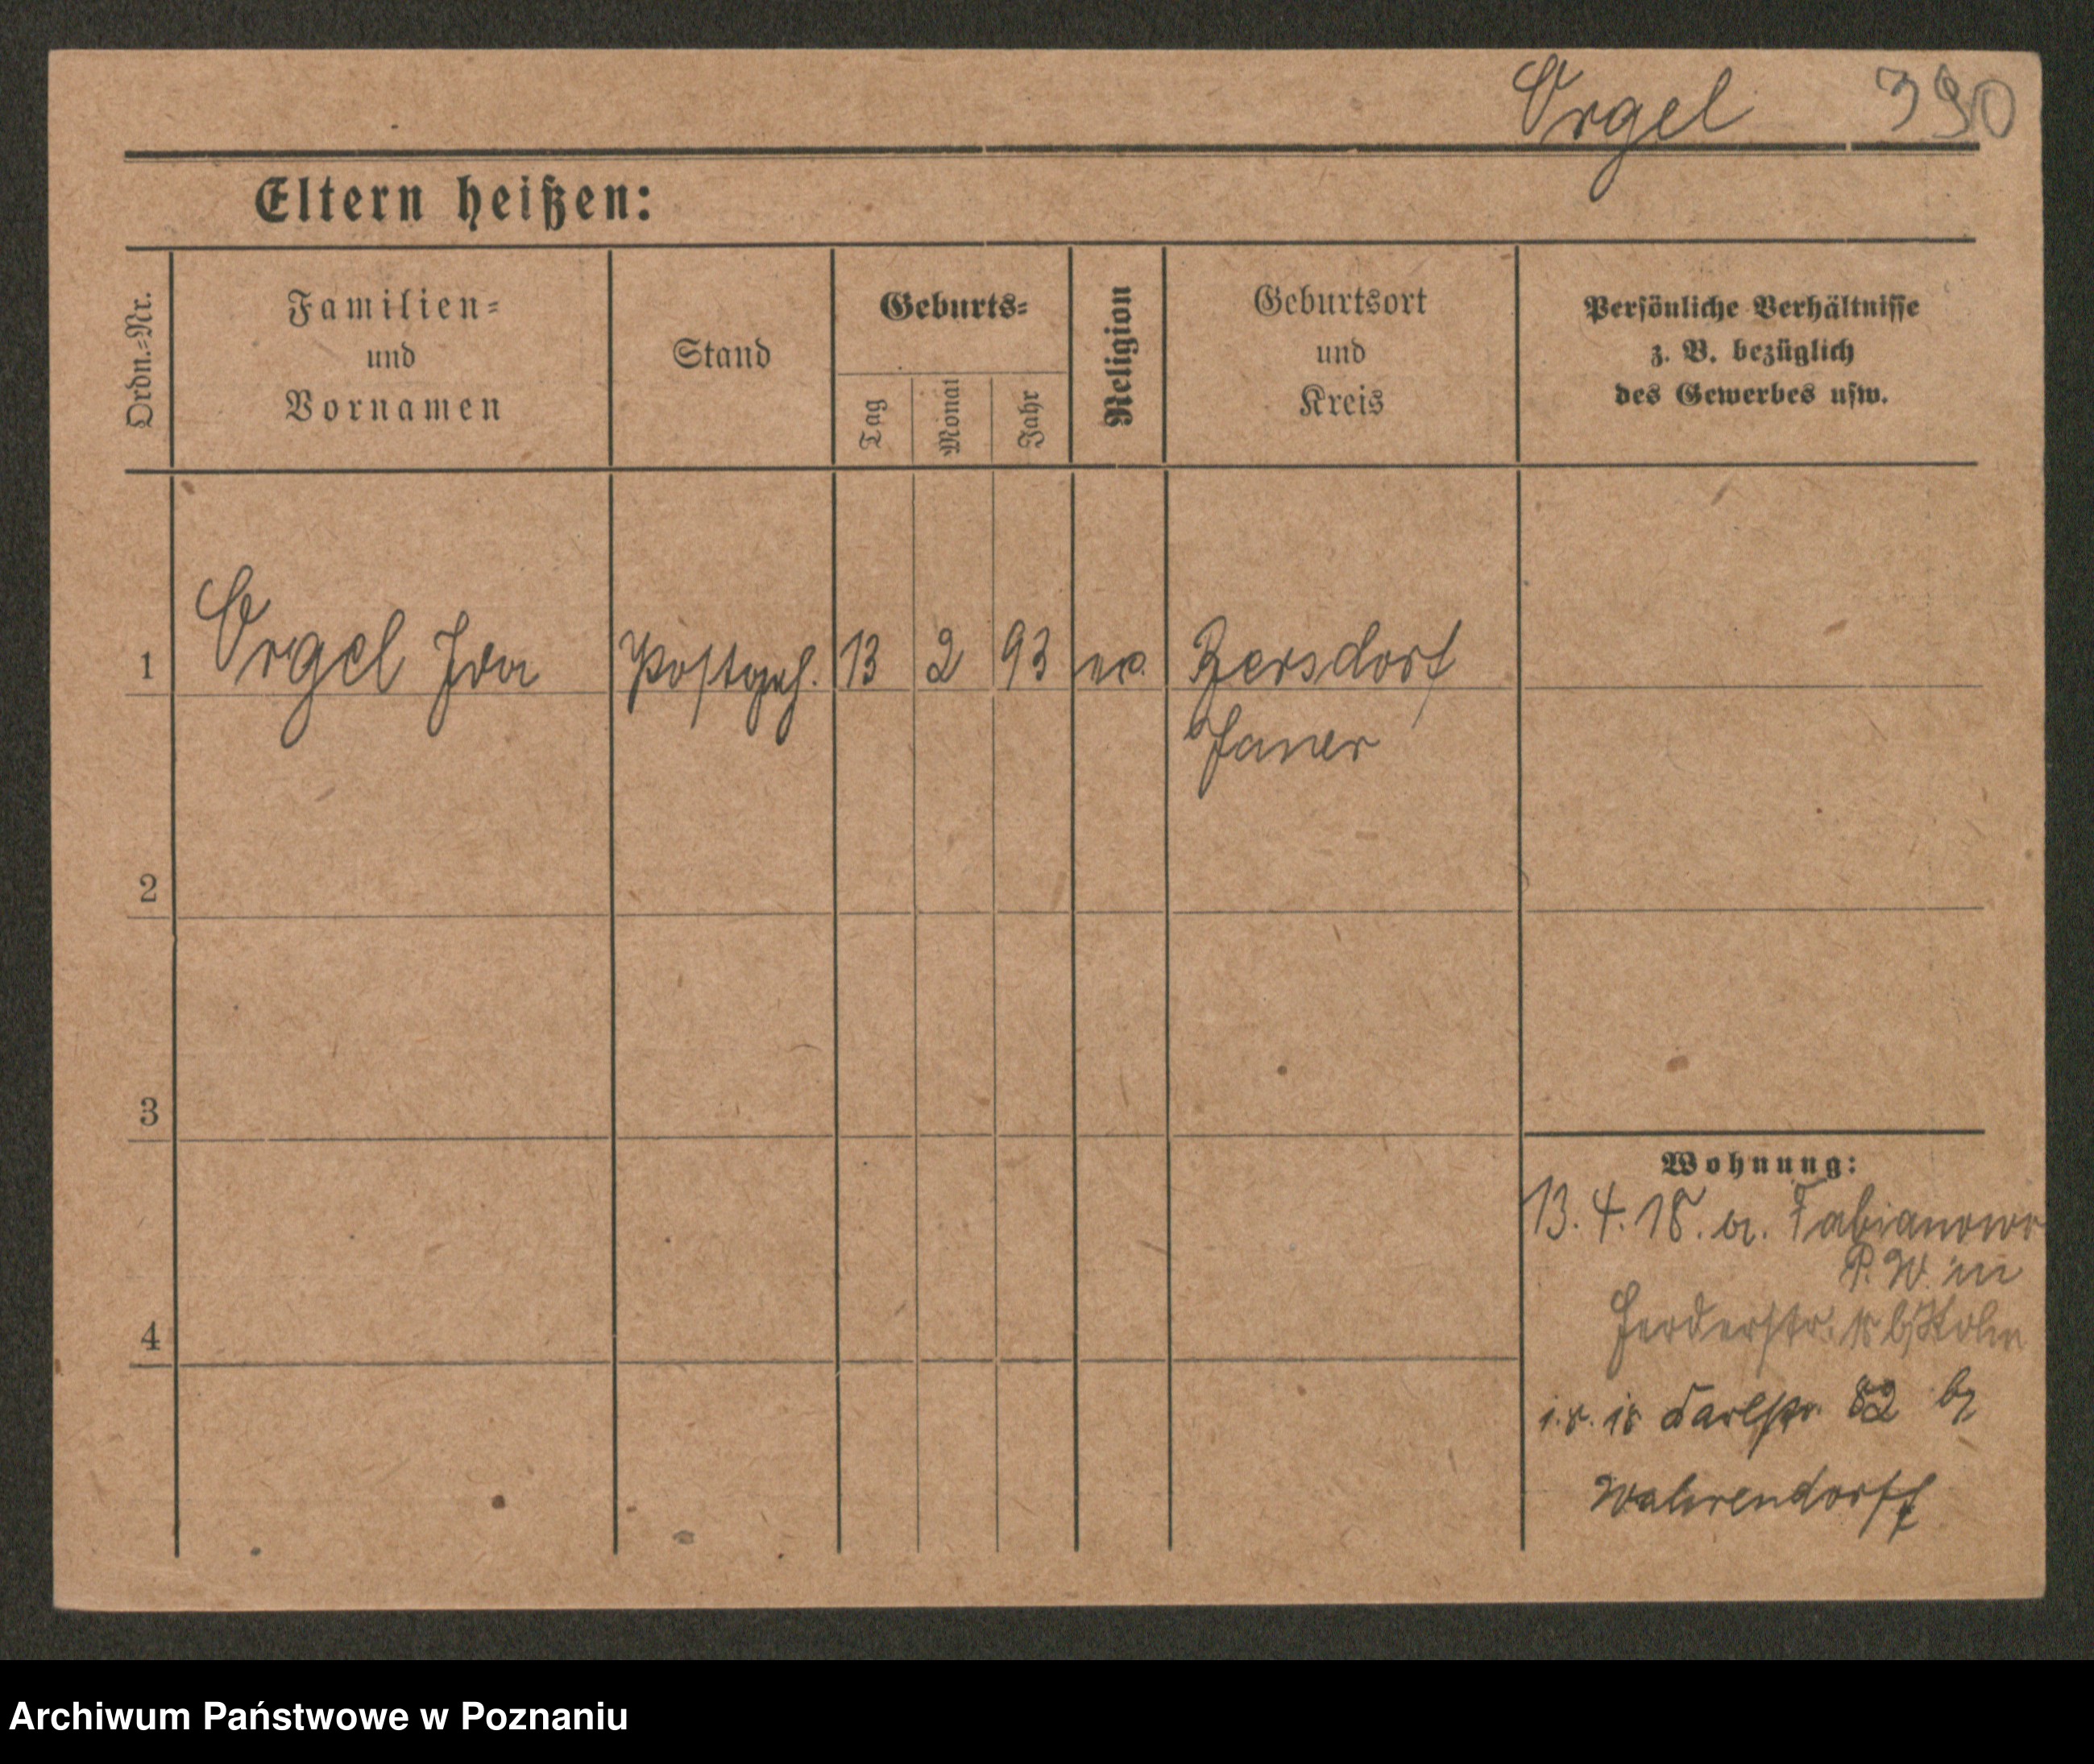 Orgel 390
Eltern heißen:
Ordn.-Nr.
Familien-
und
Vornamen
Stand
Geburts-
Tag
Monat
Jahr
Religion
Geburtsort
und
Kreis
Persönliche Verhältnisse
z. B. bezüglich
des Gewerbes usw.
1 Orgel Ida Postgeh. 13 2 93 ev. Zersdorf
Jauer
2
3
4
Wohnung:
13. 4. 18. a. Fabianowo
P. W.
Herderstr. 18 b/ Kolm
1. 8. 18 Karlstr. 82 b/
Wahrendorff
Archiwum Państwowe w Poznaniu